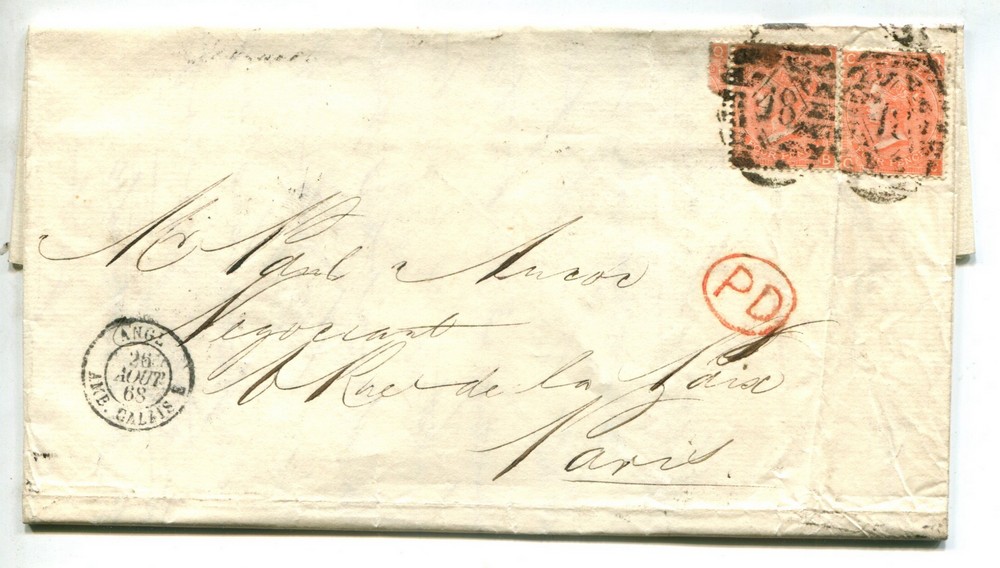 18 18
Mr Paul Aucoc
PD
Negociant
6 Rue de la Paix
Paris.
ANGL.
26
AOUT
68
AMB. CALAIS E